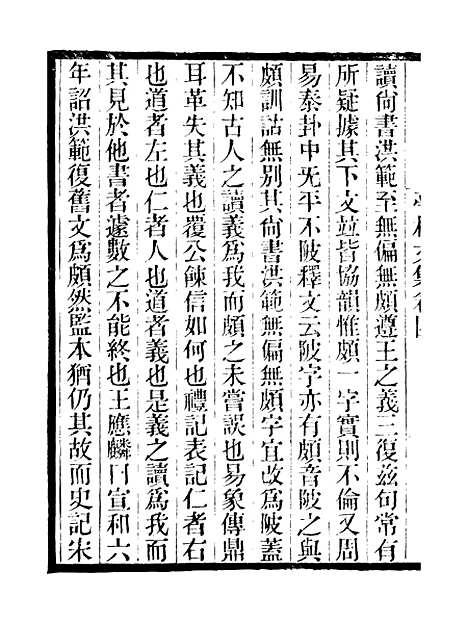 讀尙書洪範至無偏無頗遵王之義三復茲句常有
所疑據其下文竝皆協韻惟頗一字實則不倫又周
易泰卦中旡平不陂釋文云陂字亦有頗音陂之與
頗訓詁無別其尙書洪範無偏無頗字宜改爲陂蓋
不知古人之讀義爲我而頗之未嘗誤也易象傳鼎
耳革失其義也覆公餗信如何也禮記表記仁者右
也道者左也仁者人也道者義也是義之讀爲我而
其見於他書者遽數之不能終也王應麟曰宣和六
年詔洪範復舊文爲頗然監本猶仍其故而史記宋